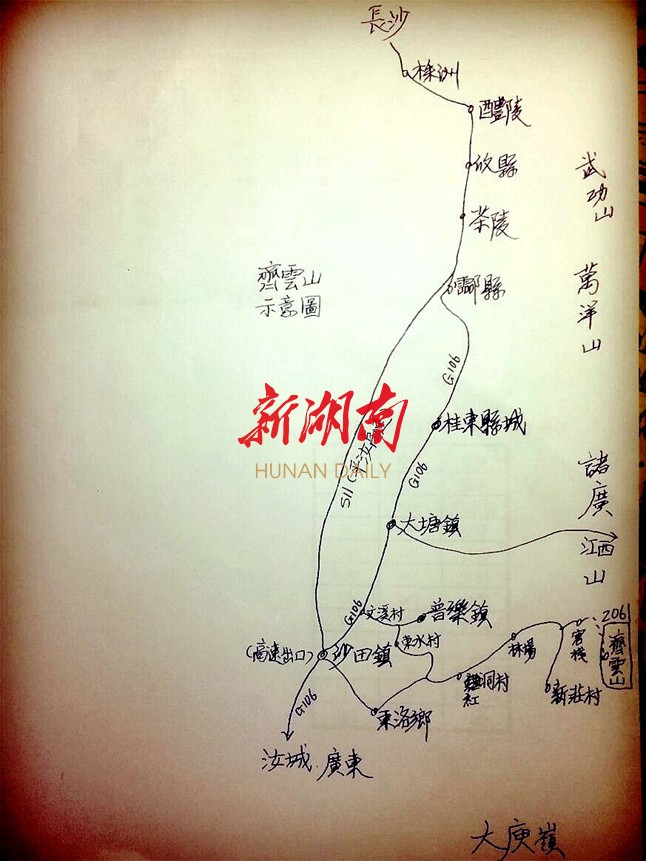 長沙
株洲
醴陵
攸縣
茶陵
酃縣
武功山
萬洋山
諸廣山
齊雲山
示意圖
G106
桂東縣城
G106
S11
新湖南
HUNAN DAILY
大塘鎮
江西
G106
文溪村
普樂鎮
東水村
(高速出口)
沙田鎮
林場
客棧
2061
齊雲山
新莊村
洞村
紅
G106
東洛鄉
汝城.廣東
大庾嶺